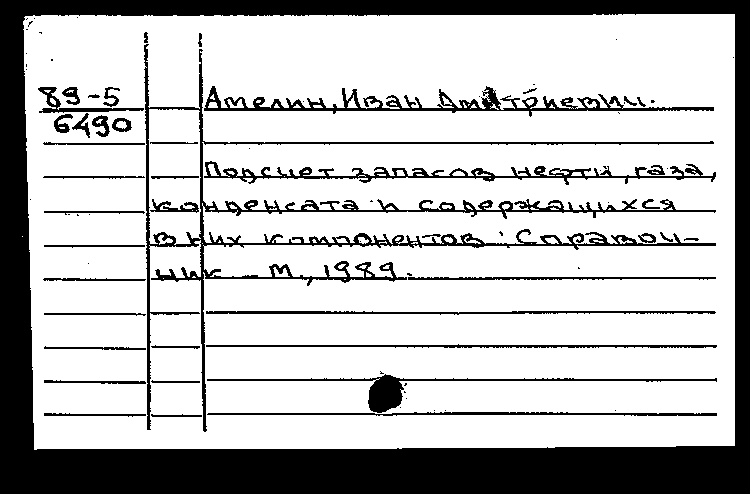 89-5
6490
Амелин, Иван Дмитриевич.
Подсчет запасов нефти, газа,
конденсата и содержащихся
в них компонентов: Справоч-
ник - М., 1989.